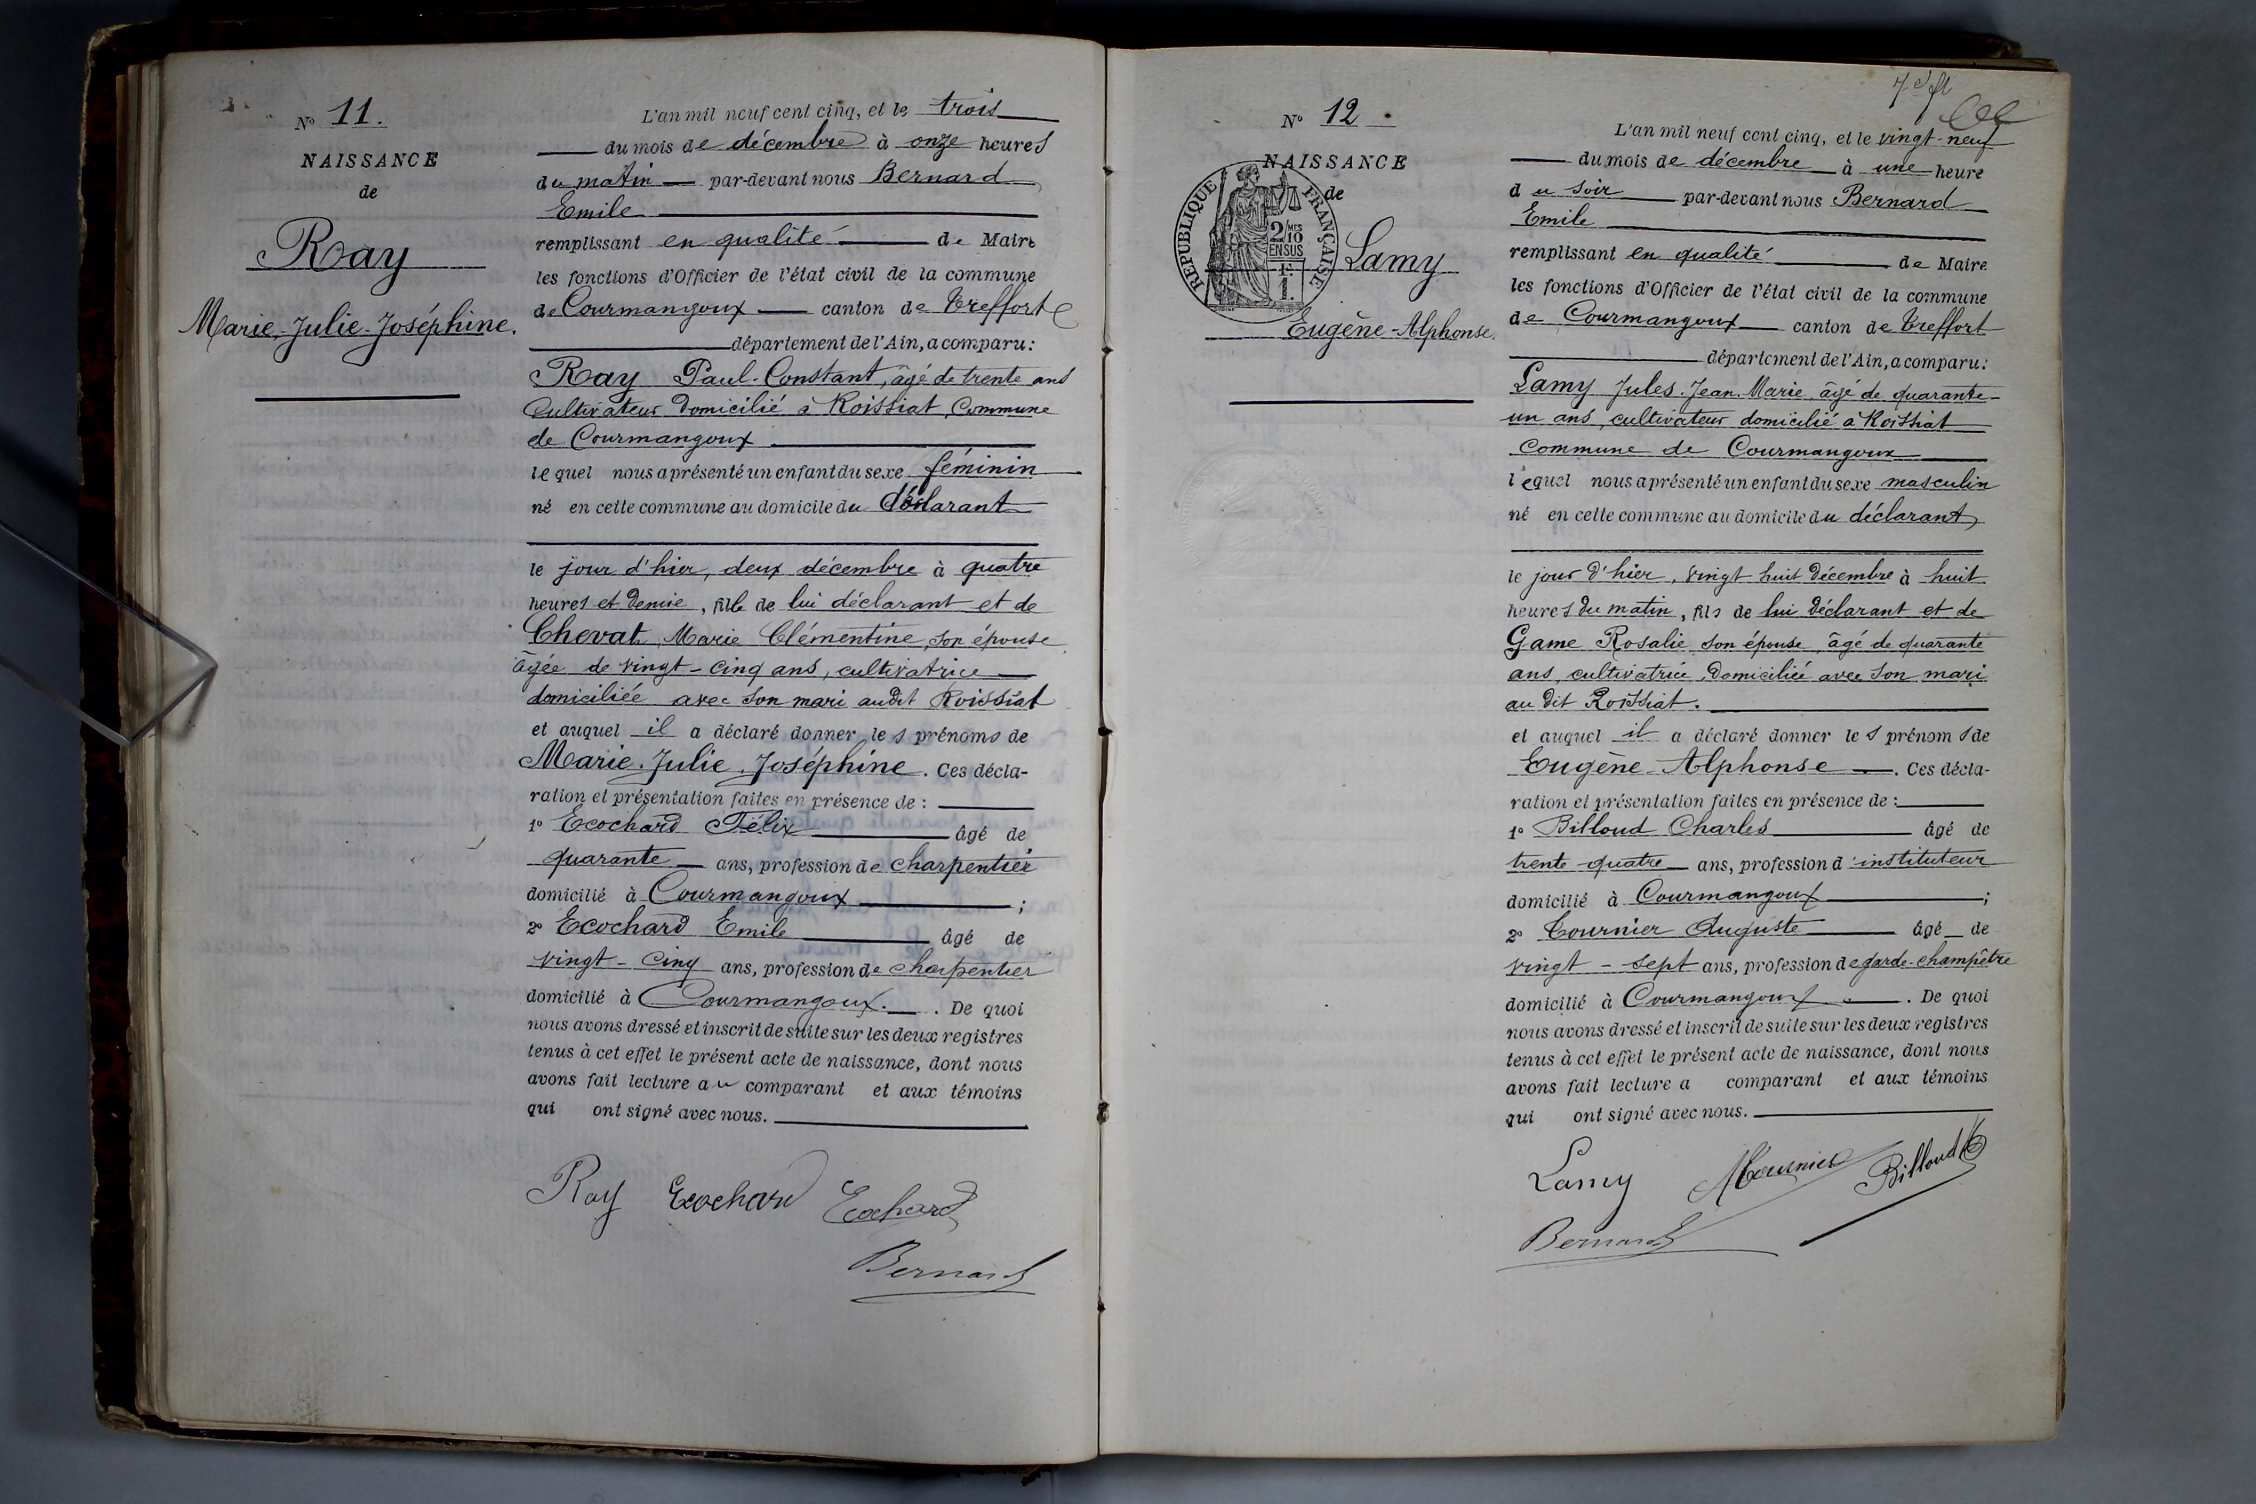 Nº 11.
NAISSANCE
de
Ray
Marie-Julie-Joséphine.
L'an mil neuf cent cinq, et le trois
du mois de décembre à onze heures
du matin par-devant nous Bernard
Emile
remplissant en qualité de Maire
les fonctions d'Officier de l'état civil de la commune
de Courmangoux canton de Treffort
département de l'Ain, a comparu:
Ray Paul-Constant, âgé de trente ans
Cultivateur domicilié à Roissiat, Commune
de Courmangoux
lequel nous a présenté un enfant du sexe féminin
né en cette commune au domicile du déclarant
le jour d'hier, deux décembre à quatre
heures et demie, fille de lui déclarant et de
Chevat Marie Clémentine, son épouse
âgée de vingt-cinq ans, cultivatrice
domiciliée avec son mari audit Roissiat
et auquel il a déclaré donner les prénoms de
Marie. Julie. Joséphine. Ces décla-
ration et présentation faites en présence de :
1º Ecochard Félix âgé de
quarante ans, profession de charpentier
domicilié à Courmangoux ;
2º Ecochard Emile âgé de
vingt-cinq ans, profession de charpentier
domicilié à Courmangoux. . De quoi
nous avons dressé et inscrit de suite sur les deux registres
tenus à cet effet le présent acte de naissance, dont nous
avons fait lecture au comparant et aux témoins
qui ont signé avec nous.
Ray Ecochard Ecochard
Bernard
Nº 12.
NAISSANCE
de
REPUBLIQUE FRANÇAISE
2/10 MES
EN SUS
Lamy
Eugène-Alphonse.
L'an mil neuf cent cinq, et le vingt-neuf
du mois de décembre à une heure
du soir par-devant nous Bernard
Emile
remplissant en qualité de Maire
les fonctions d'Officier de l'état civil de la commune
de Courmangoux canton de Treffort
département de l'Ain, a comparu:
Lamy Jules. Jean. Marie. âgé de quarante-
un ans, cultivateur domicilié à Roissiat
Commune de Courmangoux
lequel nous a présenté un enfant du sexe masculin
né en cette commune au domicile du déclarant
le jour d'hier, vingt huit Décembre à huit
heures du matin, fils de lui déclarant et de
Game Rosalie son épouse, âgé de quarante
ans, cultivatrice, Domiciliée avec son mari
au dit Roissiat.
et auquel il a déclaré donner les prénoms de
Eugène-Alphonse . Ces décla-
ration et présentation faites en présence de :
1º Billoud Charles âgé de
trente-quatre ans, profession d'instituteur
domicilié à Courmangoux ;
2º Tournier Auguste âgé de
vingt-sept ans, profession de garde-champêtre
domicilié à Courmangoux . De quoi
nous avons dressé et inscrit de suite sur les deux registres
tenus à cet effet le présent acte de naissance, dont nous
avons fait lecture a comparant et aux témoins
qui ont signé avec nous.
Lamy ATournier Billoud
Bernard